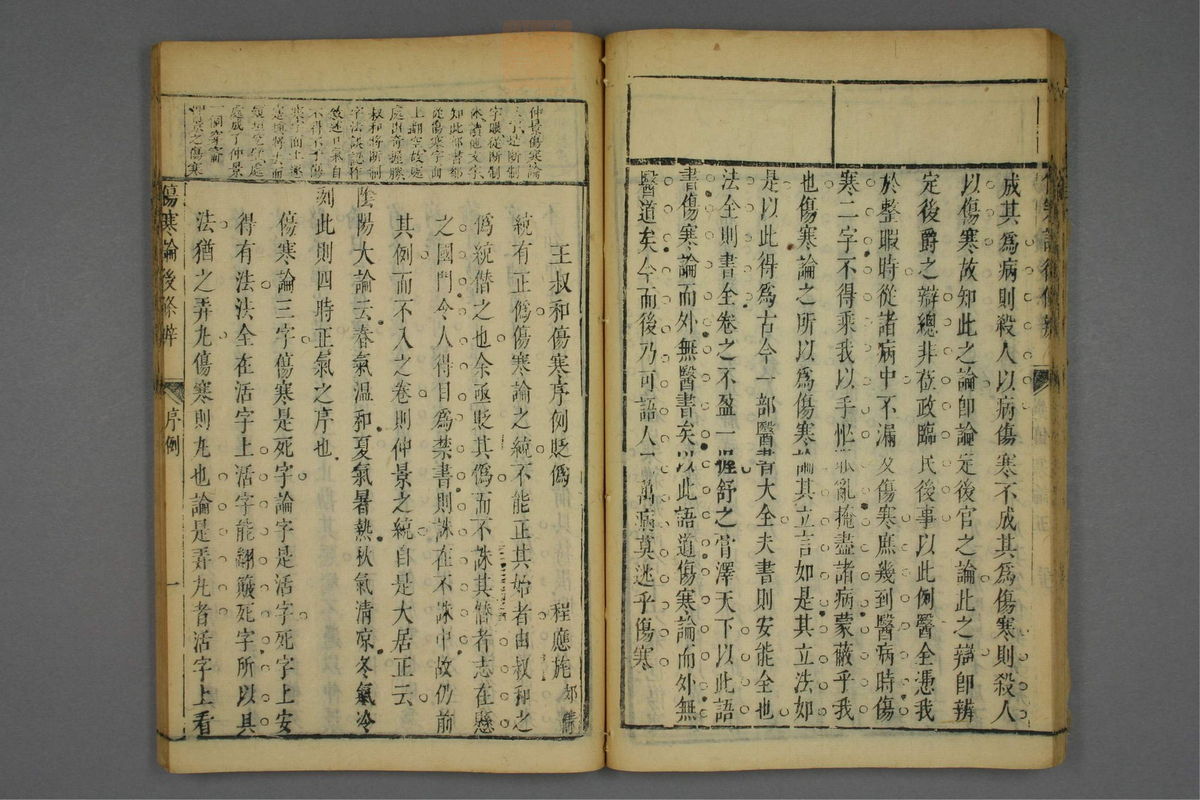 成其爲病則殺人以病傷寒不成其爲傷寒則殺人
以傷寒故知此之論卽論定後官之論此之辯卽辨
定後爵之辯總非莅政臨民後事以此例醫全憑我
於整暇時從諸病中不漏及傷寒庶幾到醫病時傷
寒二字不得乘我以手忙眼亂掩盡諸病蒙蔽乎我
也傷寒論之所以爲傷寒論其立言如是其立法如
是以此得爲古今一部醫書大全夫書則安能全也
法全則書全卷之不盈一握舒之膏澤天下以此語
書傷寒論而外無醫書矣以此語道傷寒論而外無
醫道矣今而後乃可語人曰萬病莫逃乎傷寒
仲景傷寒論
字眼從斷制
知此部書都
從傷寒字面
上翻空故處
處出奇握勝
叔和將斷制
字法誤認作
敘述
處處是仲景
傷寒論後條辨
序例
一
王叔和傷寒序例貶僞
程應旄郊倩
統有正僞傷寒論之統不能正其始者由叔和之
僞統僭之也余亟貶其僞而不誅其僭者志在懸
之國門令人得目爲禁書則誅在不誅中故仍前
其例而不入之卷則仲景之統自是大居正云
陰陽大論云春氣溫和夏氣暑熱秋氣清凉冬氣冷
冽此則四時正氣之序也
傷寒論三字傷寒是死字論字是活字死字上安
得有法法全在活字上活字能翻簸死字所以具
法猶之弄丸傷寒則丸也論是弄丸者活字上看